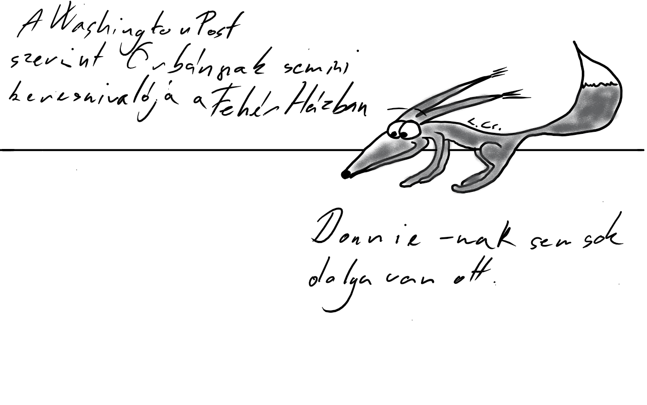 A Washington Post
szerint Orbánnak semmi
keresnivalója a Fehér Házban
Donnie-nak sem sok
dolga van ott.